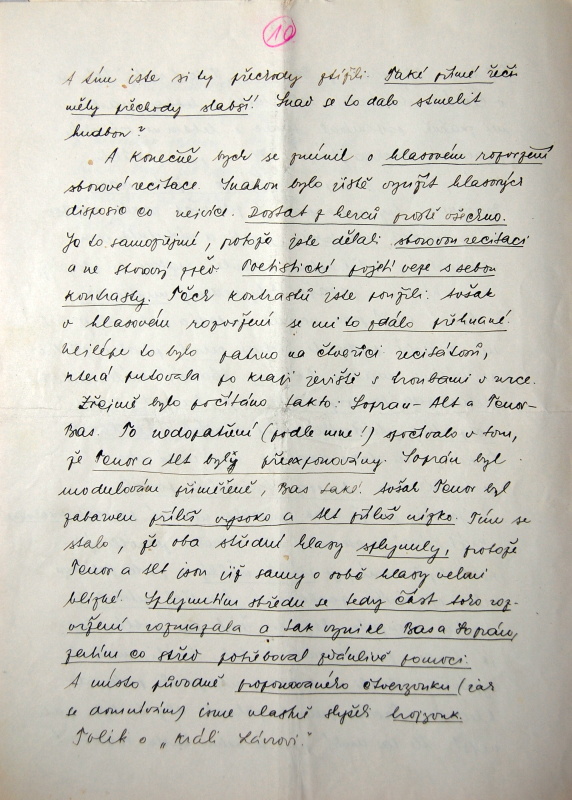 10
A tím jste si ty přechody ztížili. Také přímé řeči
měly přechody slabší! Snad se to dalo stmelit
hudbou?
A konečně bych se zmínil o hlasovém rozvržení
sborové recitace. Snahou bylo jistě využít hlasových
disposic co nejvíce. Dostat z herců prostě všechno.
Je to samozřejmé, protože jste dělali sborovou recitaci
a ne sborový zpěv. Poetistické pojetí veze s sebou
kontrasty. Těch kontrastů jste použili. Avšak
v hlasovém rozvržení se mi to zdálo přehnané.
Nejlépe to bylo patrno na čtveřici recitátorů,
která putovala po kraji jeviště s troubami v ruce.
Zřejmě bylo počítáno takto: Soprán-Alt a Tenor-
Bas. To nedopatření (podle mne!) spočívalo v tom,
že Tenor a Alt byly přeexponovány. Soprán byl
modulován přiměřeně, Bas také. Avšak Tenor byl
zabarven příliš vysoko a Alt příliš nízko. Tím se
stalo, že oba střední hlasy splynuly, protože
Tenor a Alt jsou již samy o sobě hlasy velmi
blízké. Splynutím středu se tedy část toho roz-
vržení rozmazala a tak vynikl Bas a Soprán,
zatím co střed potřeboval zdánlivě pomoci.
A místo původně proponovaného čtverzvuku (jak
se domnívám) jsme vlastně slyšeli trojzvuk.
Tolik o „Králi Lávrovi."